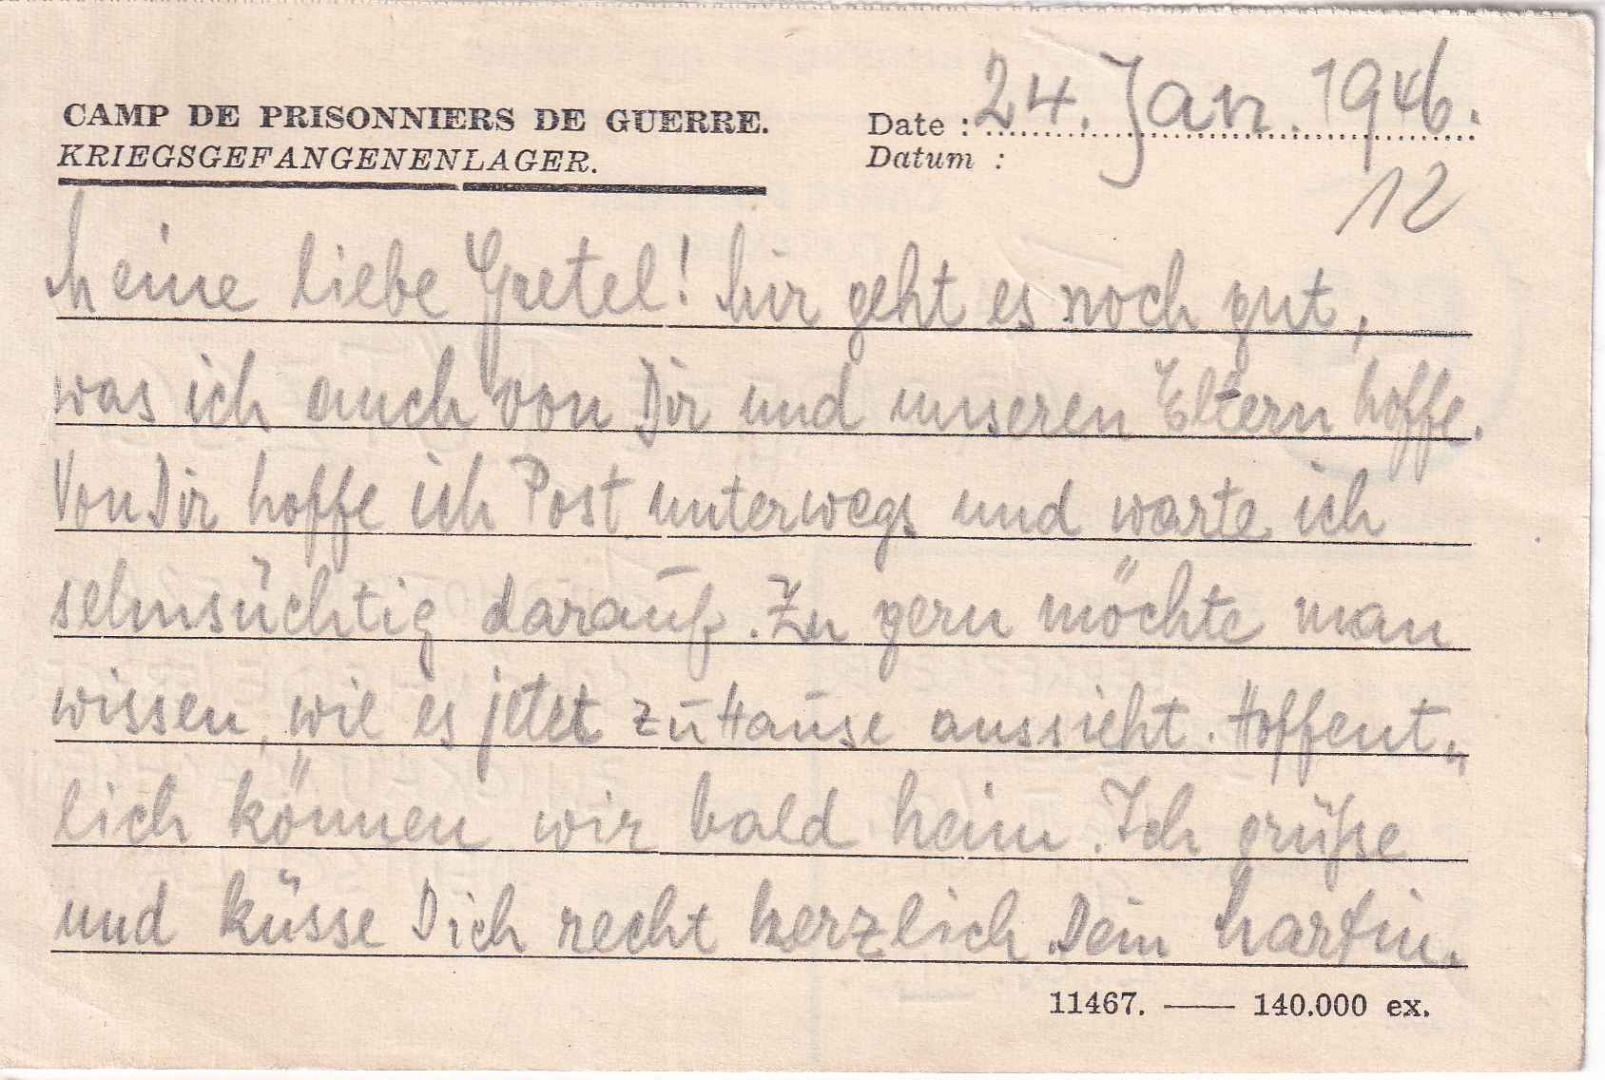 CAMP DE PRISONNIERS DE GUERRE.
KRIEGSGEFANGENENLAGER.
Date : 24. Jan. 1946.
Datum :
12
Meine liebe Gretel! Mir geht es noch gut,
was ich auch von Dir und unseren Eltern hoffe.
Von Dir hoffe ich Post unterwegs und warte ich
sehnsüchtig darauf. Zu gern möchte man
wissen, wie es jetzt zu Hause aussieht. Hoffent„
lich können wir bald heim. Ich grüße
und küsse Dich recht herzlich Dein Martin.
11467. —— 140.000 ex.